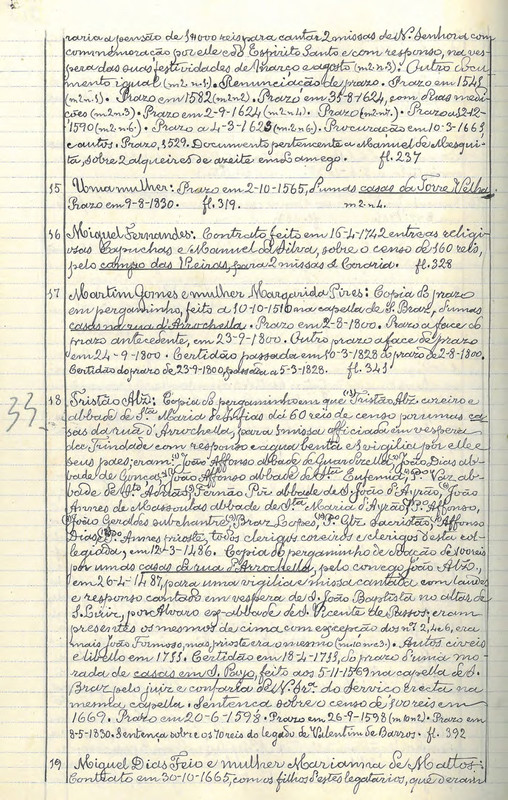 raria a pensão de 1$000 reis para cantar 2 missas de N. Senhora com
commemoração por elle e do Espirito Santo e com responso, na ves-
pera das duas festividades de Março e agosto (m2 n.3). Outro docu-
mento igual (m2 n.). Renunciação de prazo. Prazo em 1541
(m2 n.1). Prazo em 1582 (m2 n.2). Prazo em 31-8-1624, com suas medi-
ções (m2 n.3). Prazo em 2-9-1624 (m2 n.4). Prazo (m2 n.). Prazo a 12-12-
1590 (m2 n.6). Prazo a 4-3-1625 (m2 n.6). Procuração em 10-3-1661
e autos. Prazo, 1529. Documento pertencente a Manuel de Mesqui-
ta, sobre 2 alqueires de azeite em Lamego. fl. 237
15 Uma mulher: Prazo em 2-10-1565, d'umas casas da Torre Velha.
Prazo em 9-8-1830. fl. 319. m2 n.4.
16 Miguel Fernandes: Contrato feito em 16-4-1742 entre as religi-
osas Capuchas e Manuel da Silva, sobre o censo de 160 reis,
pelo campo das Pieiras, para 2 missas d'Coraria. fl. 328
17 Martim Gomes e mulher Margarida Pires: Copia do prazo
em pergaminho, feito a 10-10-1510 na capella de S. Braz, d'umas
casas na rua d'Arrochella. Prazo em 2-8-1800. Prazo a face do
prazo antecedente, em 23-9-1800. Outro prazo a face do prazo
em 24-9-1800. Certidão passada em 10-3-1828 do prazo de 2-8-1800.
Certidão do prazo de 23-9-1800, passada a 5-3-1828. fl. 341
33
18 Tristão Alz: Copia do pergaminho em que Tristão Alz coreiro e
abbade de S.ta Maria de Infias dá 60 reis de censo por umas ca-
sas da rua d'Arrochella, para 1 missa officiada em vespera
da Trindade com responso e agua benta e 1 vigilia por elle e
seus paes; eram: João Affonso abbade de Guardizella, João Dias ab-
bade de Gonça, João Affonso abbade de S.ta Eufemia, P. Vaz ab-
bade de S.to Adrião, Fernão Pir. abbade de S. João d'Ayrão, João
Annes de Massoulas abbade de S.ta Maria d'Ayrão, P. Affonso,
João Geraldes subchantre, Braz Lopes, P. Glz sacristão, Affonso
Dias, P. Annes prioste, todos clerigos coreiros e clerigos desta col-
legiada, em 12-3-1486. Copia do pergaminho de doação de 100 reis
por umas casas da rua d'Arrochella, pelo conego João Alz.,
em 26-4-1487, para uma vigilia e missa cantada com laudes
e responso cantado em vespera de S. João Baptista no altar de
S. Livir, por Alvaro ex-abbade de S. Vicente de Passos; eram
presentes os mesmos de cima com excepção dos n.os 2, 4 e 6, era
mais João Formoso, mas prioste era o mesmo (m10 n.3). Autos civeis
e libello em 1711. Certidão em 18-4-1711, do prazo d'uma mo-
rada de casas em S. Payo, feito aos 5-11-1569 na capella de S.
Braz pelo juiz e confraria de N. Sr.a do Serviço erecta na
mesma capella. Sentença sobre o censo de 100 reis em
1669. Prazo em 20-6-1598. Prazo em 26-9-1598 (m6 n2). Prazo em
8-5-1830. Sentença sobre os 70 reis do legado de Valentim de Barros. fl. 392
19 Miguel Dias Feio e mulher Marianna de Mattos:
Contrato em 30-10-1665, com os filhos d'estes legatarios, que deram